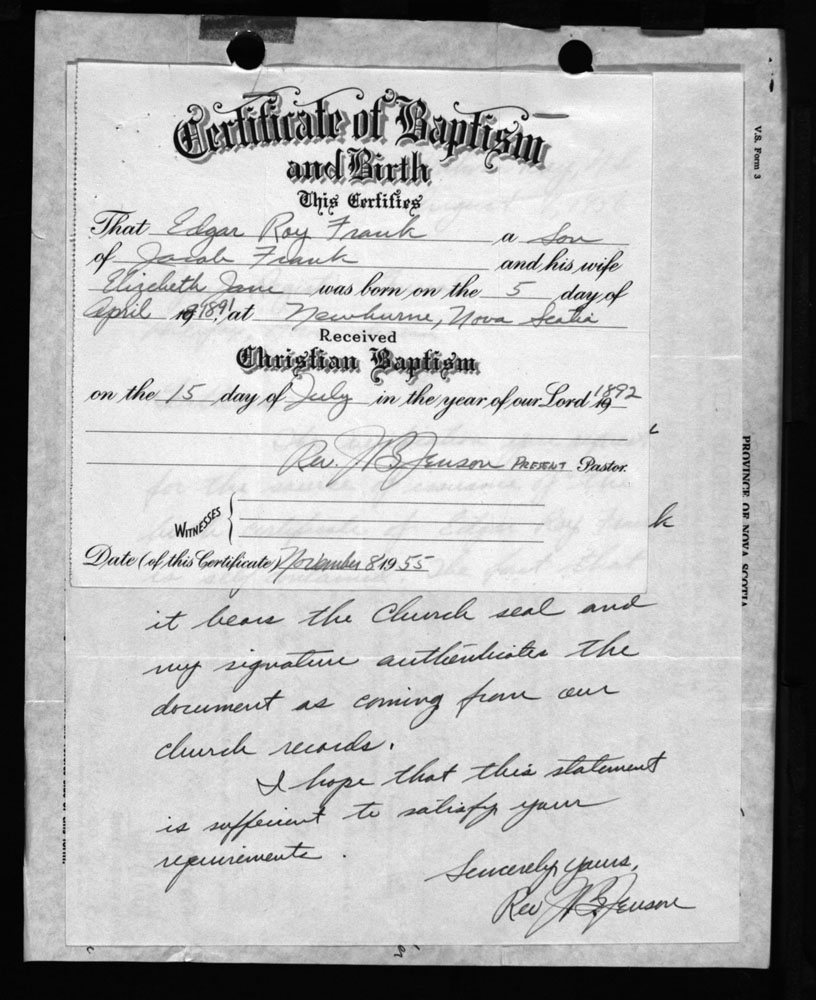 Certificate of Baptism
and Birth
This Certifies
That Edgar Roy Frank a Son
of Jacob Frank and his wife
Elizebeth Jane was born on the 5 day of
April 19 1891, at Newburne, Nova Scotia
Received
Christian Baptism
on the 15 day of July in the year of our Lord 19 1892
Rev. J B Jenson PRESENT Pastor.
WITNESSES
Date (of this Certificate) November 8 1955
it bears the Church seal and
my signature authenticates the
document as coming from our
church records.
I hope that this statement
is sufficient to satisfy your
requirements.
Sincerely yours,
Rev J B Jenson
V.S. Form 3
PROVINCE OF NOVA SCOTIA